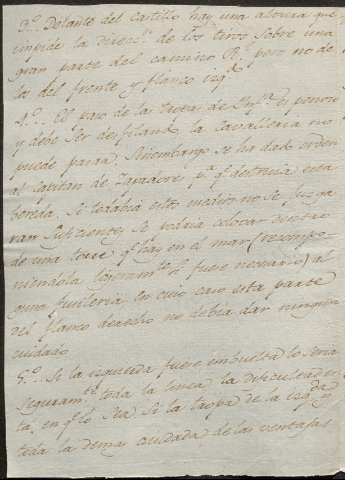 3º. Delante del Castillo hay una altura que
impide la direccn. de los tiros sobre una
gran parte del camino Rl. pero no de
la del frente y flanco izqdo.
4º. El paso de las tropas de Infa. es penoso
y debe ser desfilando, la cavalleria no
puede pasar. Sinembargo se ha dado orden
al Capitan de Zapadores pa. qe. destruia esta
bereda. Si todabia estos medios no se juzga
ran suficientes, se podria colocar dentro
de una torre qe. hay en el mar (recompo
niendola ligeramte. si fuere necesario) al
guna fusileria en cuio caso esta parte
del flanco derecho no debia dar ningun
cuidado
5º. Si la izquierda fuere embuelta lo seria
seguramte. toda la linea, la dificultad es
ta, en qe. lo sea. Si la tropa de la izqda. y
toda la demas cuidada de las ventajas